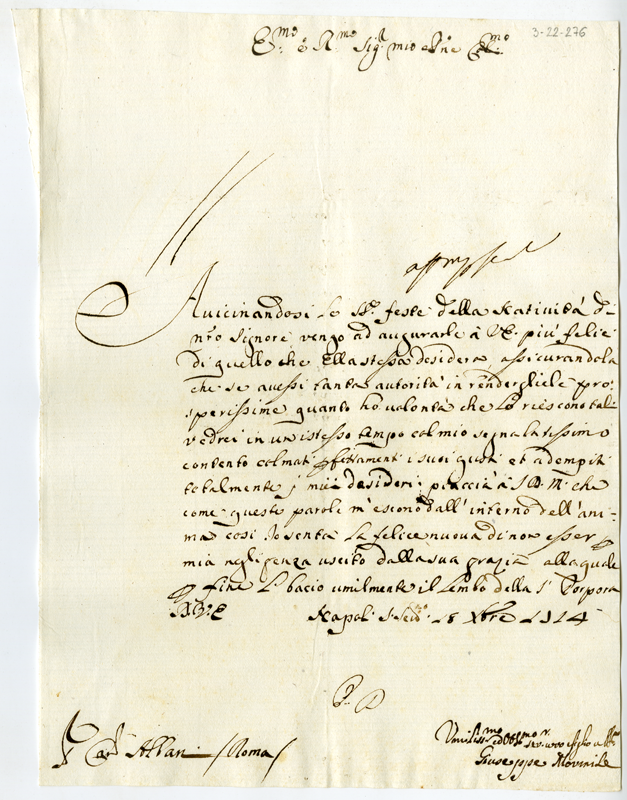 3-22-276
E.mo e R.mo Sig.r mio P.ne Col.mo
Auicinandosi le S.te feste della Natiuità di
nr̃o Signore vengo ad augurarle à V.E. più felici
di quello che Ella stessa desidera assicurandola
che se auessi tanta autorità in rendergliele pro:
sperissime quanto hò volontà che Lo riescono tali
vedrei in un istesso tempo col mio segnalatissimo
contento colmati i suoi gusti et adempiti
totalmente i miei desiderij piaccia à S.D.M. che
come queste parole m'escono dall'interno dell'ani:
ma così Io senta la felice nuoua di non esser
mia negligenza uscito dalla sua grazia alla quale
fine L. bacio umilmente il Lembo della S. Porpora
Napoli 18 Xbre 1714
Car.l Albani Roma
Giuseppe